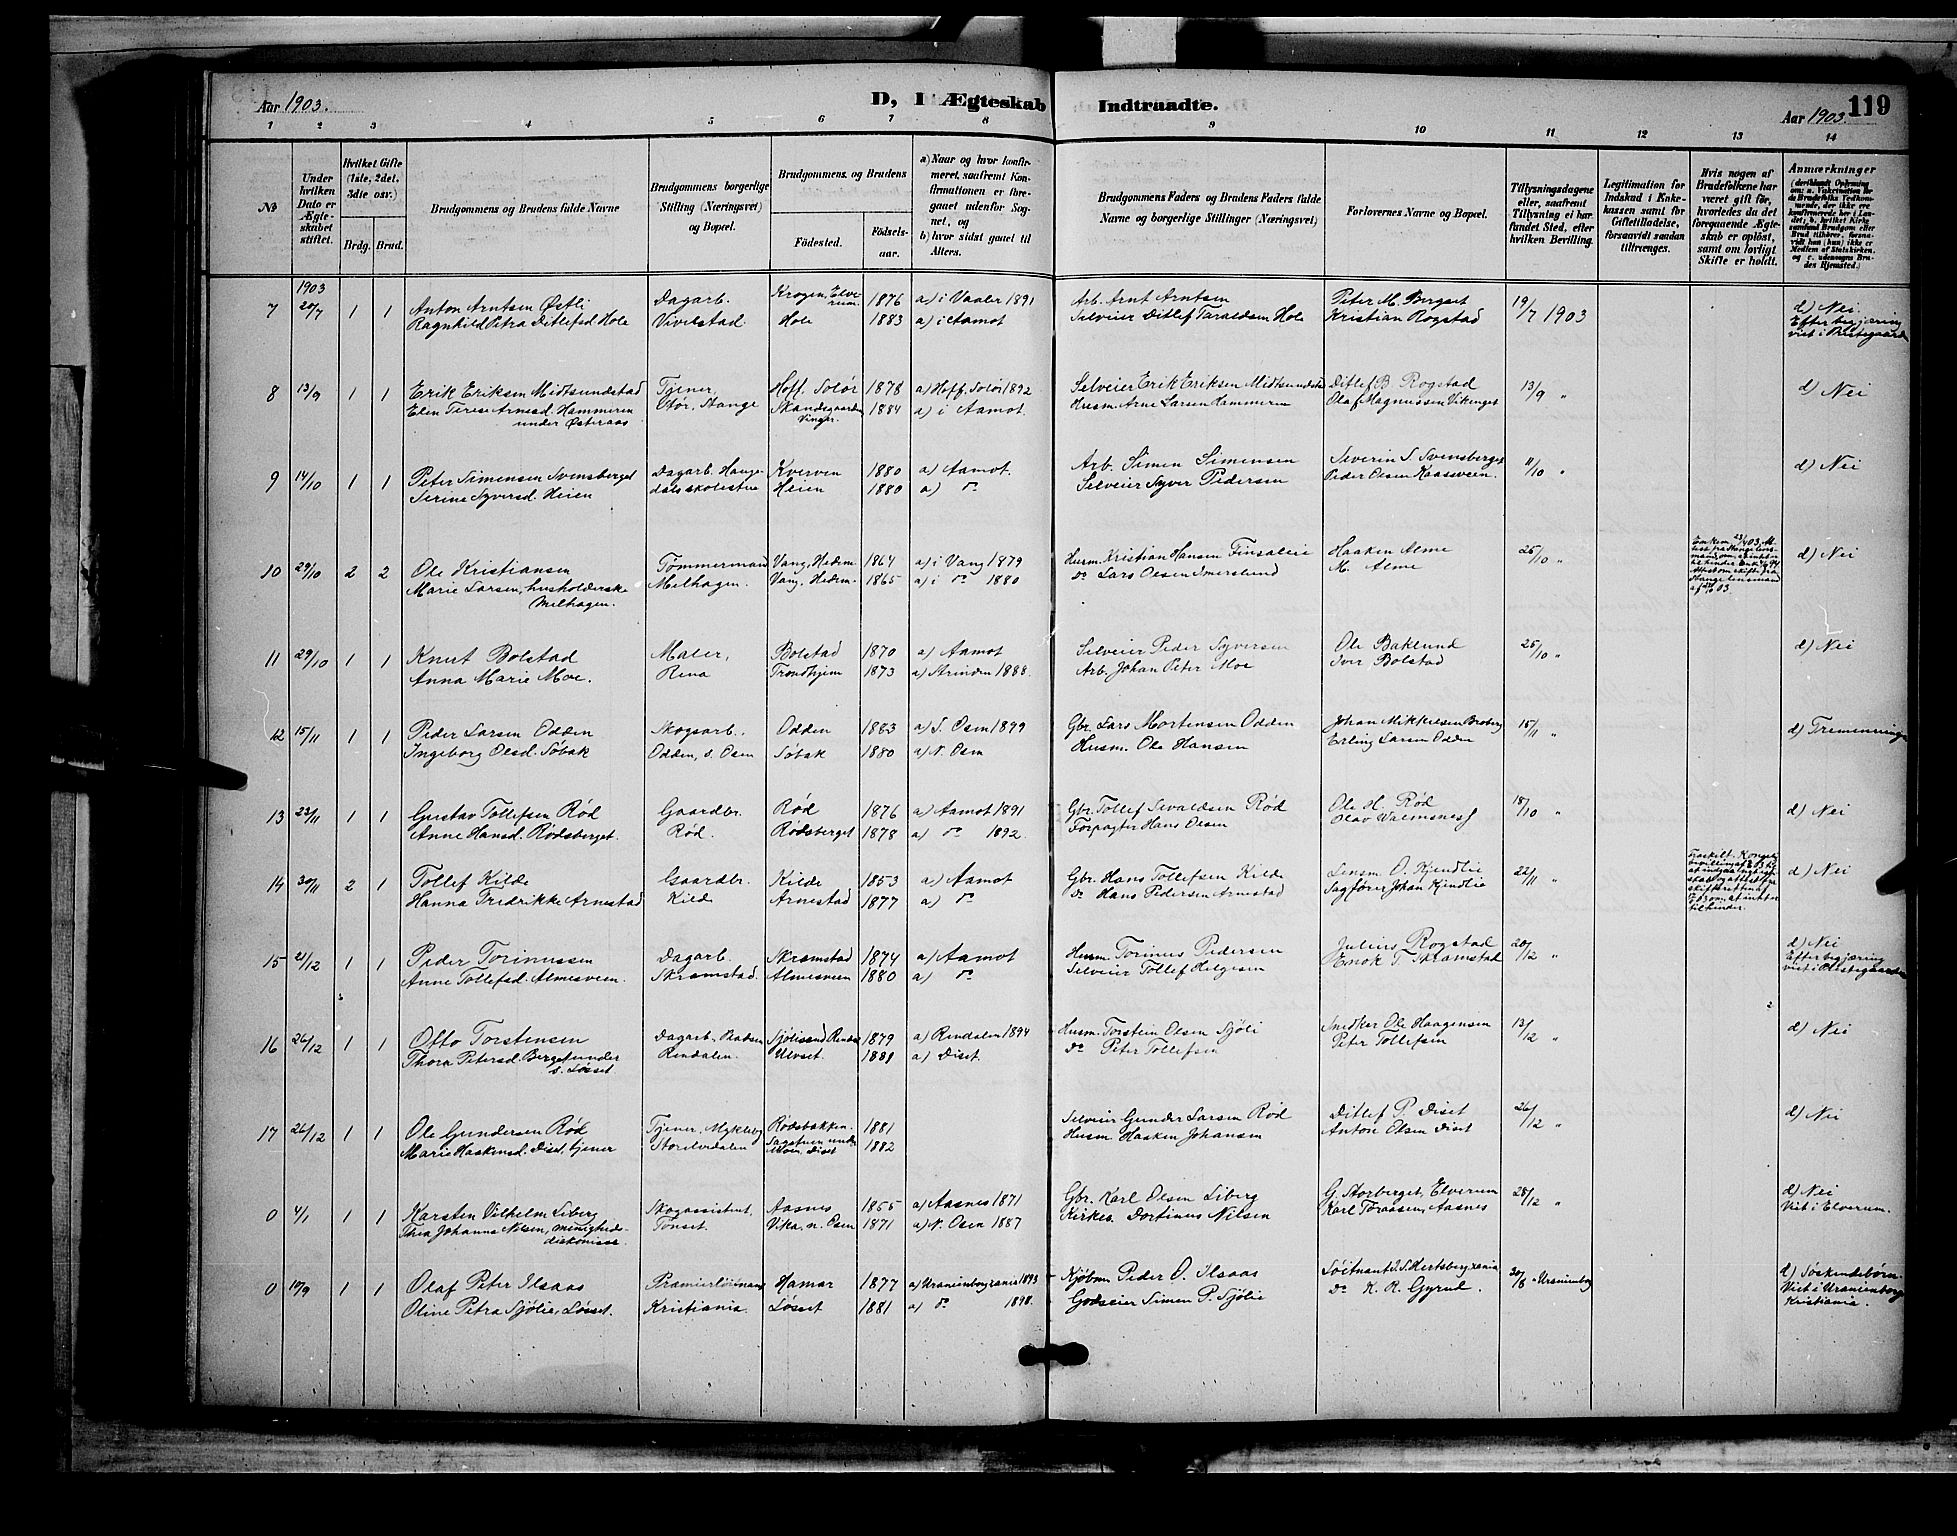 Aar 1903.
D, I Ægteskab Indtraadte.
Aar 1903. 119
1 2 3 4 5 6 7 8 9 10 11 12 13 14
No
Under hvilken Dato er Ægteskabet stiftet.
Hvilket Gifte (1ste, 2det, 3die osv.)
Brdg. Brud.
Brudgommens og Brudens fulde Navne
Brudgommens borgerlige Stilling (Næringsvei) og Bopæl.
Brudgommens og Brudens
Födested. Födselsaar.
a) Naar og hvor konfirmeret, saafremt Konfirmationen er foregaaet udenfor Sognet, og
b) hvor sidst gaaet til Alters.
Brudgommens Faders og Brudens Faders fulde Navne og borgerlige Stillinger (Næringsvei)
Forlovernes Navne og Bopæl.
Tillysningsdagene eller, saafremt Tillysning ei har fundet Sted, efter hvilken Bevilling.
Legitimation for Indskud i Enkekassen samt for Giftetilladelse, forsaavidt saadan tiltrænges.
Hvis nogen af Brudefolkene har været gift før, hvorledes da det foregaaende Ægteskab er opløst, samt om lovligt Skifte er holdt.
Anmærkninger
1903
7 20/7 1 1 Anton Arntsen Østli Dagarb. Krogen, Elverum 1876 a) i Vaaler 1891 Arb. Arnt Arntsen Peter M. Bergset 19/7 1903 d) Nei.
Ragnhild Petra Ditlefsd Hole Vivelstad Hole 1883 a) i Aamot Selveier Ditlef Taraldsen Hole Kristian Rogstad Efter begjæring viet i Prestegaarden
8 13/9 1 1 Erik Eriksen Midtsundstad Tjener, Hoff, Solør 1878 a) Hoff, Solør 1892 Selveier Erik Eriksen Midtsundstad Ditlef B. Rogstad 13/9 " d) Nei
Elen Terese Arnesd. Hammeren Stør, Stange Skandsgaarden 1884 a) i Aamot. Husm. Arne Larsen Hammeren Olaf Magnussen Vikenget
under Østeraas Vinger.
9 14/10 1 1 Peter Simensen Svensberget Dagarb. Kverven 1880 a) Aamot. Arb. Simen Simensen Severin S. Svensberget 11/10 " d) Nei
Serine Syversd. Heien Heien 1880 a) do Selveier Syver Pedersen Peder Olsen Kaasveen.
10 29/10 2 2 Ole Kristiansen Tømmermand Vang, Hedm. 1864 a) i Vang 1879 Husm. Kristian Hansen Finsalеie Haaken Alme 25/10 " d) Nei
Marie Larsen, husholderske Melhagen. Vang, Hedm. 1865 a) i do 1880 do Lars Olsen Imerslund M. Alme
Melhagen.
11 29/10 1 1 Knut Bolstad Maler, Bolstad 1870 a) Aamot Selveier Peder Syversen Ole Baklund 25/10 " d) Nei
Anna Marie Moe. Rena Trondhjem 1873 a) Strinden 1888. Arb. Johan Peter Moe Iver Bolstad
12 15/11 1 1 Peder Larsen Odden Skogsarb. Odden 1883 a) S. Osen 1899 Gbr. Lars Mortensen Odden Johan Mikkelsen Broberg 15/11 " d) Tremenninger
Ingeborg Olsd. Søbak Odden, s. Osen Søbak 1880 a) N. Osen Husm. Ole Hansen Erling Larsen Odden
13 23/11 1 1 Gustav Tollefsen Rød Gaardbr. Rød 1876 a) Aamot 1891 Gbr. Tollef Sevaldsen Rød Ole H. Rød 18/10 " d) Nei
Anne Hansd. Rødsberget. Rød. Rødsberget 1878 a) do 1892. Forpagter Hans Olsen Olav
14 30/11 2 1 Tollef Kilde Gaardbr. Kilde 1853 a) Aamot Gbr. Hans Tollefsen Kilde Lensm. O. Kjendlie 22/11 " d) Nei
Hanna Fredrikke Arnestad Kilde Arnestad 1877 a) do do Hans Pedersen Arnestad Sagfører Johan Kjendlie
15 21/12 1 1 Peder Torinussen Dagarb. Skramstad 1874 a) Aamot Husm. Torinus Pedersen Julius Rogstad 20/12 " d) Nei
Anne Tollefsd. Almesveen. Skramstad. Almesveen 1880 a) do Selveier Tollef Helgesen Enok T. Skramstad Efter begjæring viet i Prestegaarden
16 26/12 1 1 Otto Torstensen Dagarb. Sjølisand 1879 a) Rendalen 1894 Husm. Torstein Olsen Sjøli Snedker Ole Haagensen 13/12 " d) Nei
Thora Petersd. Berget under Rendalen. Ulvset. 1881 a) Diset. do Peter Tollefsen Peter Tollefsen
s. Løsset.
17 26/12 1 1 Ole Gundersen Rød Tjener, Mykleby Rødsbakken. 1881 Selveier Gunder Larsen Rød Ditlef P. Diset 26/12 " d) Nei
Marie Haakensd. Diset, tjener Storelvedalen Sagstuen under Moen, Diset 1882 Husm. Haaken Johansen Anton Olsen Diset
0 4/1 1 1 Karsten Vilhelm Liberg Skogassistent, Aasnes 1855 a) Aasnes 1871 Gbr. Karl Olsen Liberg G. Storberget, Elverum 28/12 " d) Nei
Thea Johanne Nilsen, menigheds- Tønset. Vika, n. Osen 1871 a) N. Osen 1887 Kirkes. Dortinus Nilsen Karl Toraasen, Aasnes Viet i Elverum.
diakonisse
0 10/9 1 1 Olaf Peter Ilsaas Premierløitnant Hamar 1877 a) Uranienborg xania 1893 Kjøbm. Peder O. Ilsaas 30/8 " Uranienborg d) Søskendebørn
Oline Petra Sjølie, Løsset. Kristiania. Løsset 1881 a) do 1898. Godseier Simen P. Sjølie do K. R. Gyrud. Viet i Uranienborg Kristiania.